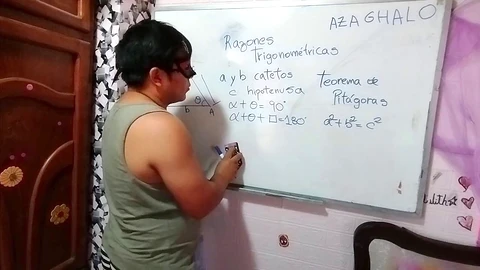 AZAGHALO
Razones
Trigonométricas
a y b catetos
c hipotenusa
α + θ = 90°
α + θ + □ = 180°
Teorema de
Pitágoras
a² + b² = c²
θ
b A